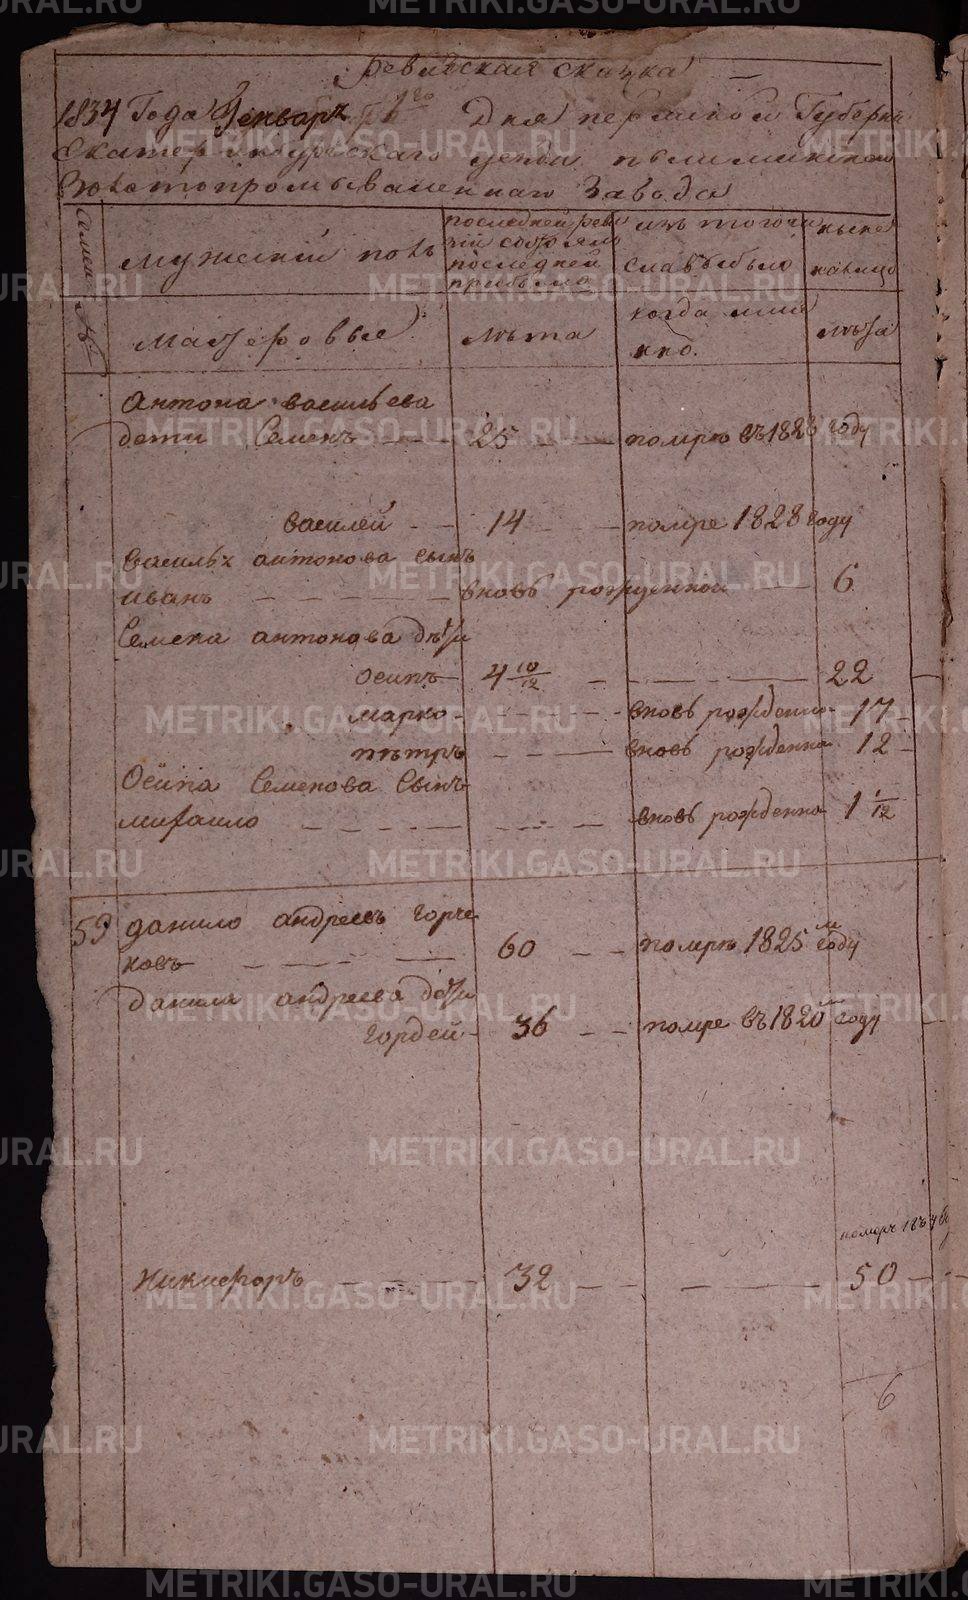 Ревизская сказка
1834 Года Генваря 1го Дня пермской Губернии
Екатеринбурскаго уезда пышминскаго
Золотопромываленнаго Завода
Семей №
Мужеский полъ
последней реви
зии состояло
последней
прибыло
изъ того числа выбыло
ныне
налицо
мастеровые
лѣта
когда имян
но.
лѣта
Антона васильева
дети Семенъ 25 помре въ 1828 году
василей 14 помре 1828 году
василья антонова сынъ
иванъ вновь рожденной 6
Семена антонова дѣти
осипъ 4 10/12 22
марко вновь рожденно 17
пѣтръ вновь рожденна 12
Осипа Семенова Сынъ
михаило вновь рожденна 1 1/12
59 данило андреевъ горче
ковъ 60 помре 1825м году
данила андреева дѣти
гордей 36 помре въ 1820м году
помре
Никифоръ 32 50
6
METRIKI.GASO-URAL.RU